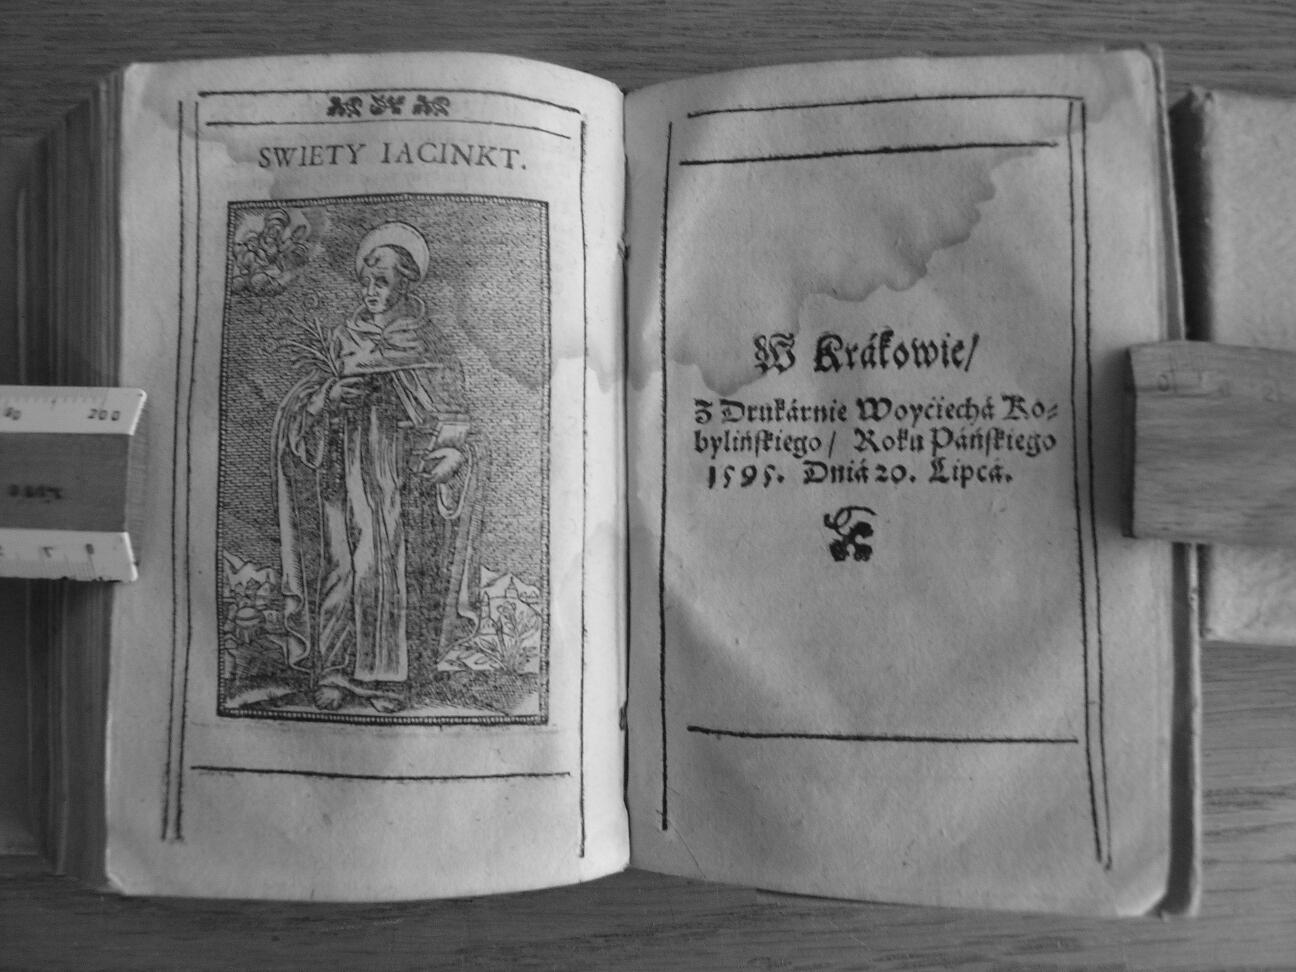 SWIETY IACINKT.
W Krákowie/
Z Drukárnie Woyćiechá Ko-
bylińskiego/ Roku Páńskiego
1595. Dniá 20. Lipcá.
200